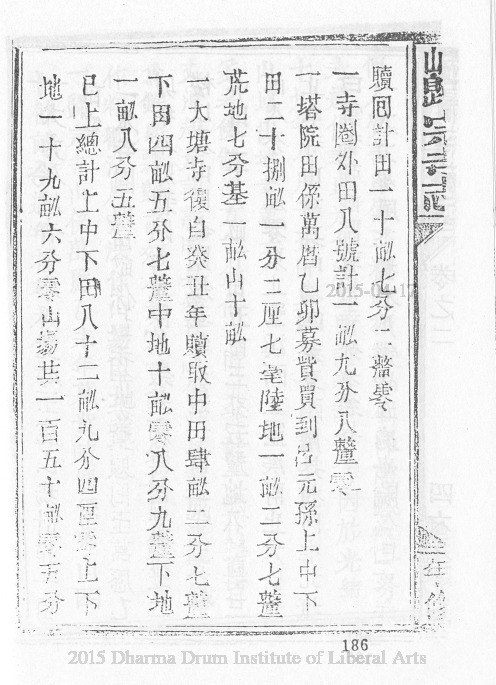 贖囘計田一十畝七分二釐零
一寺圈外田八號計一畝九分八釐零
一塔院田係萬曆乙卯募貲買到呂元孫上中下
田二十捌畝一分二厘七毫陸地一畝二分七釐
荒地七分基一畝山十畝
一大塘寺復自癸丑年贖取中田肆畝二分七釐
下田四畝五分七釐中地十畝零八分九釐下地
一畝八分五釐
已上總計上中下田八十二畝九分四厘零上下
地一十九畝六分零山塲共一百五十畝零五分
2015-04-17
186
2015 Dharma Drum Institute of Liberal Arts